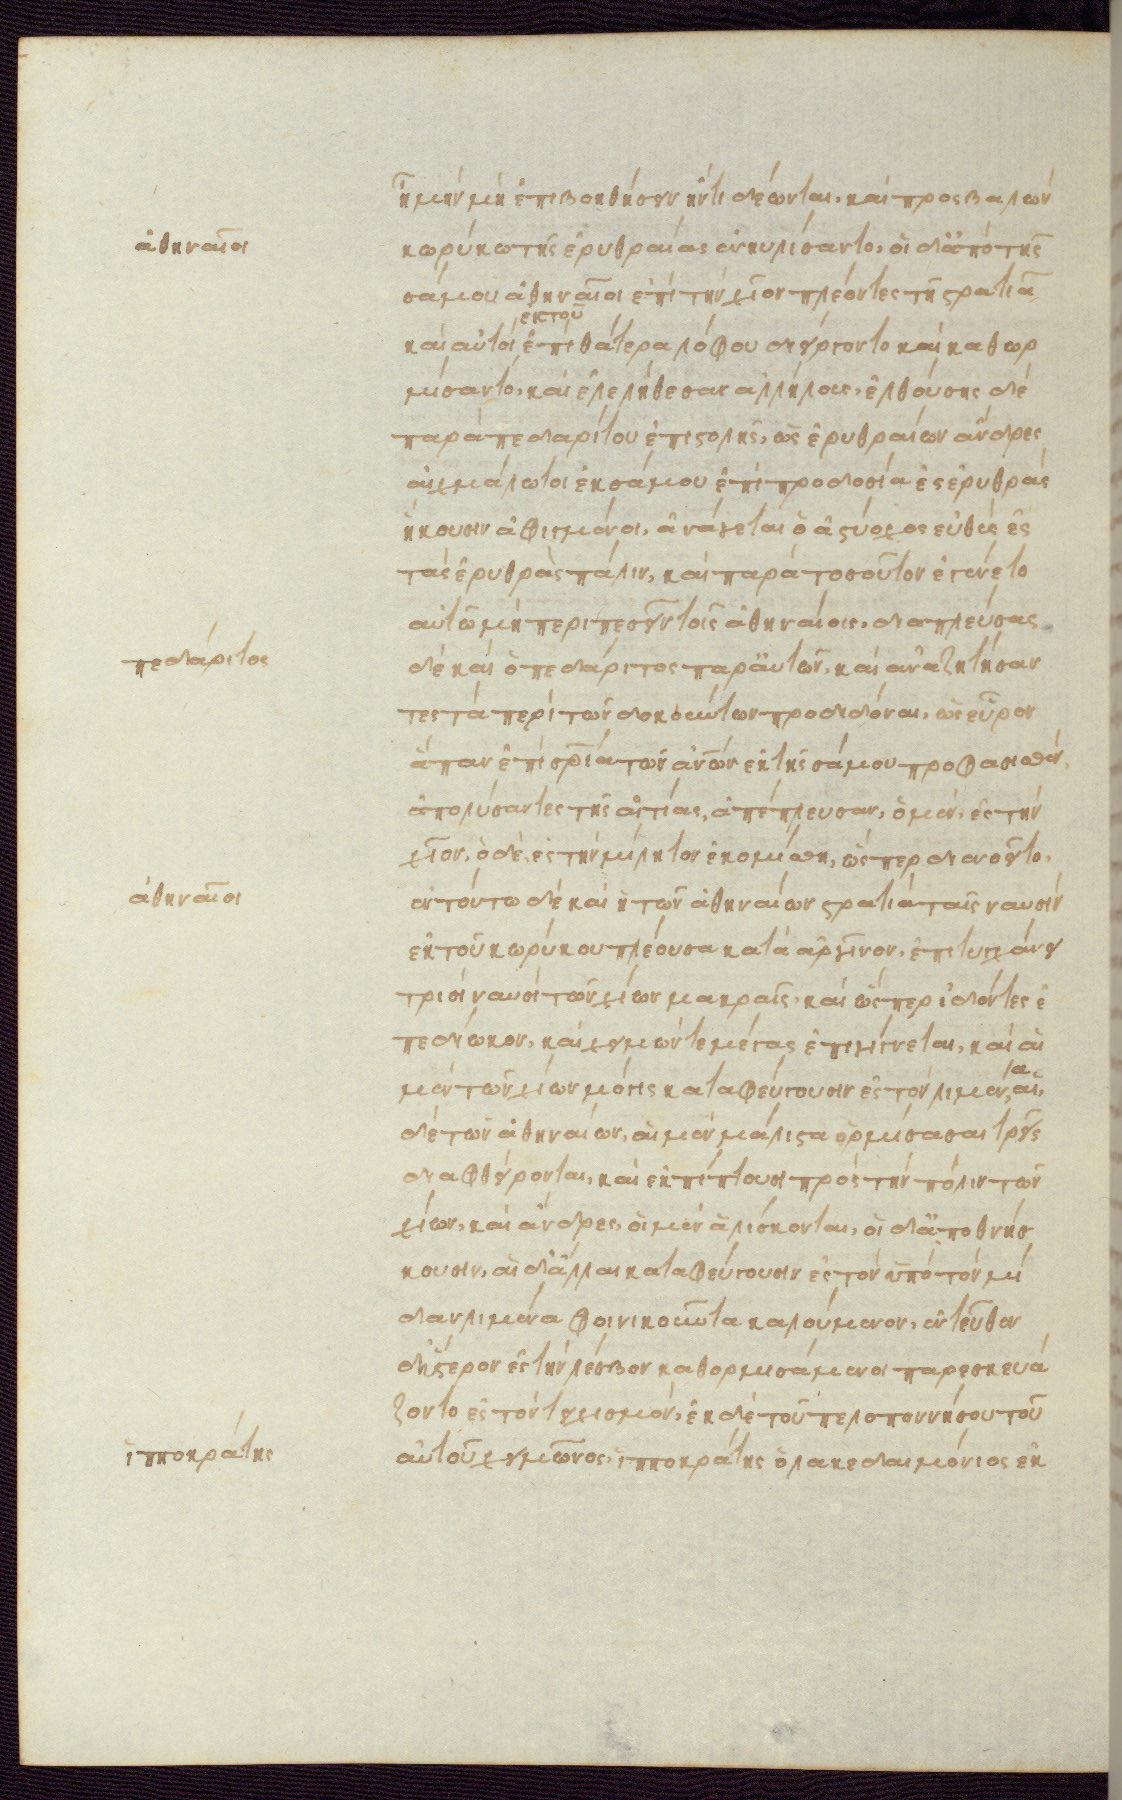 ἦ μὴν μὴ ἐπιβοηθήσειν ἤν τι δέωνται, καὶ προσβαλὼν
ἀθηναῖοι
κωρύκω τῆς ἐρυθραίας ἐνηυλίσαντο, οἱ δ' ἀπὸ τῆς
σάμου ἀθηναῖοι ἐπὶ τὴν χῖον πλέοντες τῆ στρατιᾶ
ἐκ τοῦ
καὶ αὐτοὶ ἐπὶ θάτερα λόφου διείργοντο καὶ καθωρ
μίσαντο, καὶ ἐλελήθεσαν ἀλλήλους, ἐλθούσης δὲ
παρὰ πεδαρίτου ἐπιστολῆς, ὡς ἐρυθραίων ἄνδρες
αἰχμάλωτοι ἐκ σάμου ἐπὶ προδοσία ἐς ἐρυθρὰς
ἥκουσιν ἀφιεμένοι, ἀνάγεται ὁ ἀστύοχος εὐθὺς ἐς
τὰς ἐρυθρὰς πάλιν, καὶ παρὰ τοσοῦτον ἐγένετο
αὐτῶ μὴ περιπεσεῖν τοῖς ἀθηναίοις, διαπλεύσας
πεδάριτος
δὲ καὶ ὁ πεδάριτος παρ' αὐτὸν, καὶ ἀναζητήσαν
τες τὰ περὶ τῶν δοκούντων προδιδόναι, ὡς εὗρον
ἅπαν ἐπὶ σρία τῶν ἀνων ἐκ τῆς σάμου προφασισθὲν,
ἀπολύσαντες τῆς αἰτίας, ἀπέπλευσαν, ὁ μὲν, ἐς τὴν
χῖον, ὁ δὲ, ἐς τὴν μίλητον ἐκομίσθη, ὥσπερ διενοεῖτο,
ἀθηναῖοι
ἐν τούτω δὲ καὶ ἡ τῶν ἀθηναίων στρατιὰ ταῖς ναυσὶν
ἐκ τοῦ κωρύκου πλέουσα κατὰ ἀργῖνον, ἐπιτυγχάνει
τρισὶ ναυσὶ τῶν χίων μακραῖς, καὶ ὥσπερ ἰδόντες ἐ
πεδίωκον, καὶ χειμών τε μέγας ἐπιγίγνεται, καὶ αἱ
μὲν τῶν χίων μόγις καταφεύγουσιν ἐς τὸν λιμένα, αἱ
δὲ τῶν ἀθηναίων, αἱ μὲν μάλιστα ὁρμήσασαι τρεῖς
διαφθείρονται, καὶ ἐκπίπτουσι πρὸς τὴν πόλιν τῶν
χίων, καὶ ἄνδρες, οἱ μὲν ἁλίσκονται, οἱ δ' ἀποθνήσ
κουσιν, αἱ δ' ἄλλαι καταφεύγουσιν ἐς τὸν ὑπὸ τὸν μί
δαν λιμένα φοινικοῦντα καλούμενον, ἐντεῦθεν
δ' ὕστερον ἐς τὴν λέσβον καθορμισάμενοι παρεσκευά
ζοντο ἐς τὸν τειχισμόν, ἐκ δὲ τοῦ πελοποννήσου τοῦ
ἱπποκράτης
αὐτοῦ χειμῶνος, ἱπποκράτης ὁ λακεδαιμόνιος ἐκ